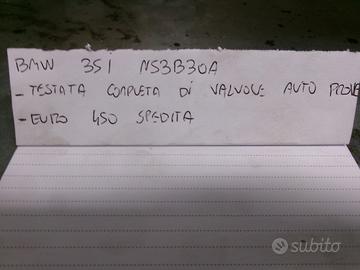 BMW 35I N53B30A
- TESTATA COMPLETA DI VALVOLE AUTO PROVE
- EURO 450 SPEDITA
subito